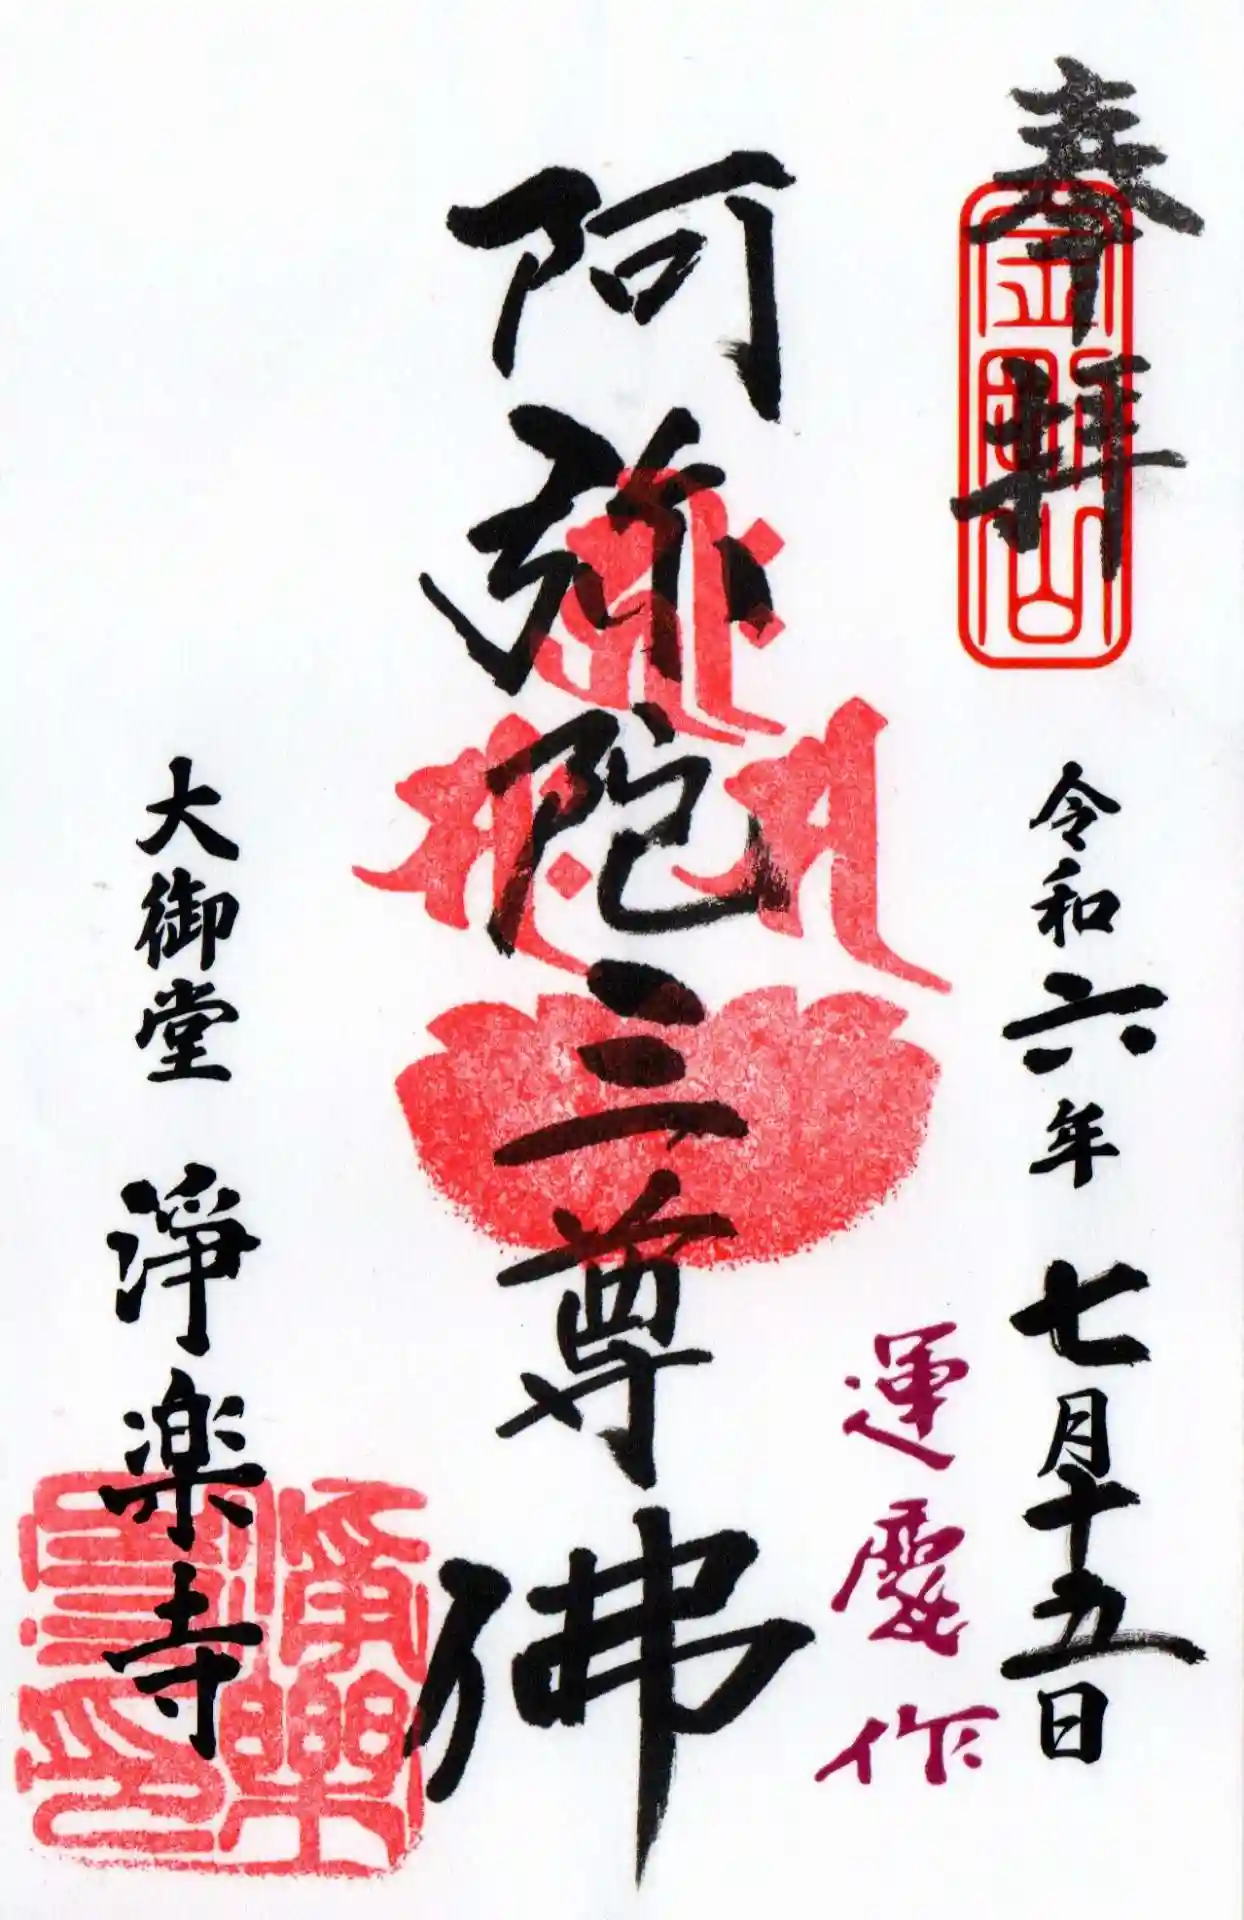 奉拝
金剛山
令和六年 七月十五日
運慶作
阿弥陀三尊佛
大御堂 淨楽寺